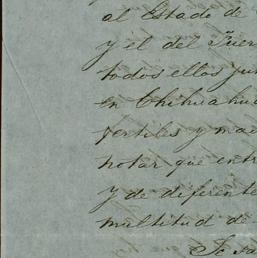 al Estado de
y el del Fuer
todos ellos jun
en Chihuahua
fertiles y ma
notar que entr
y de diferente
multitud de